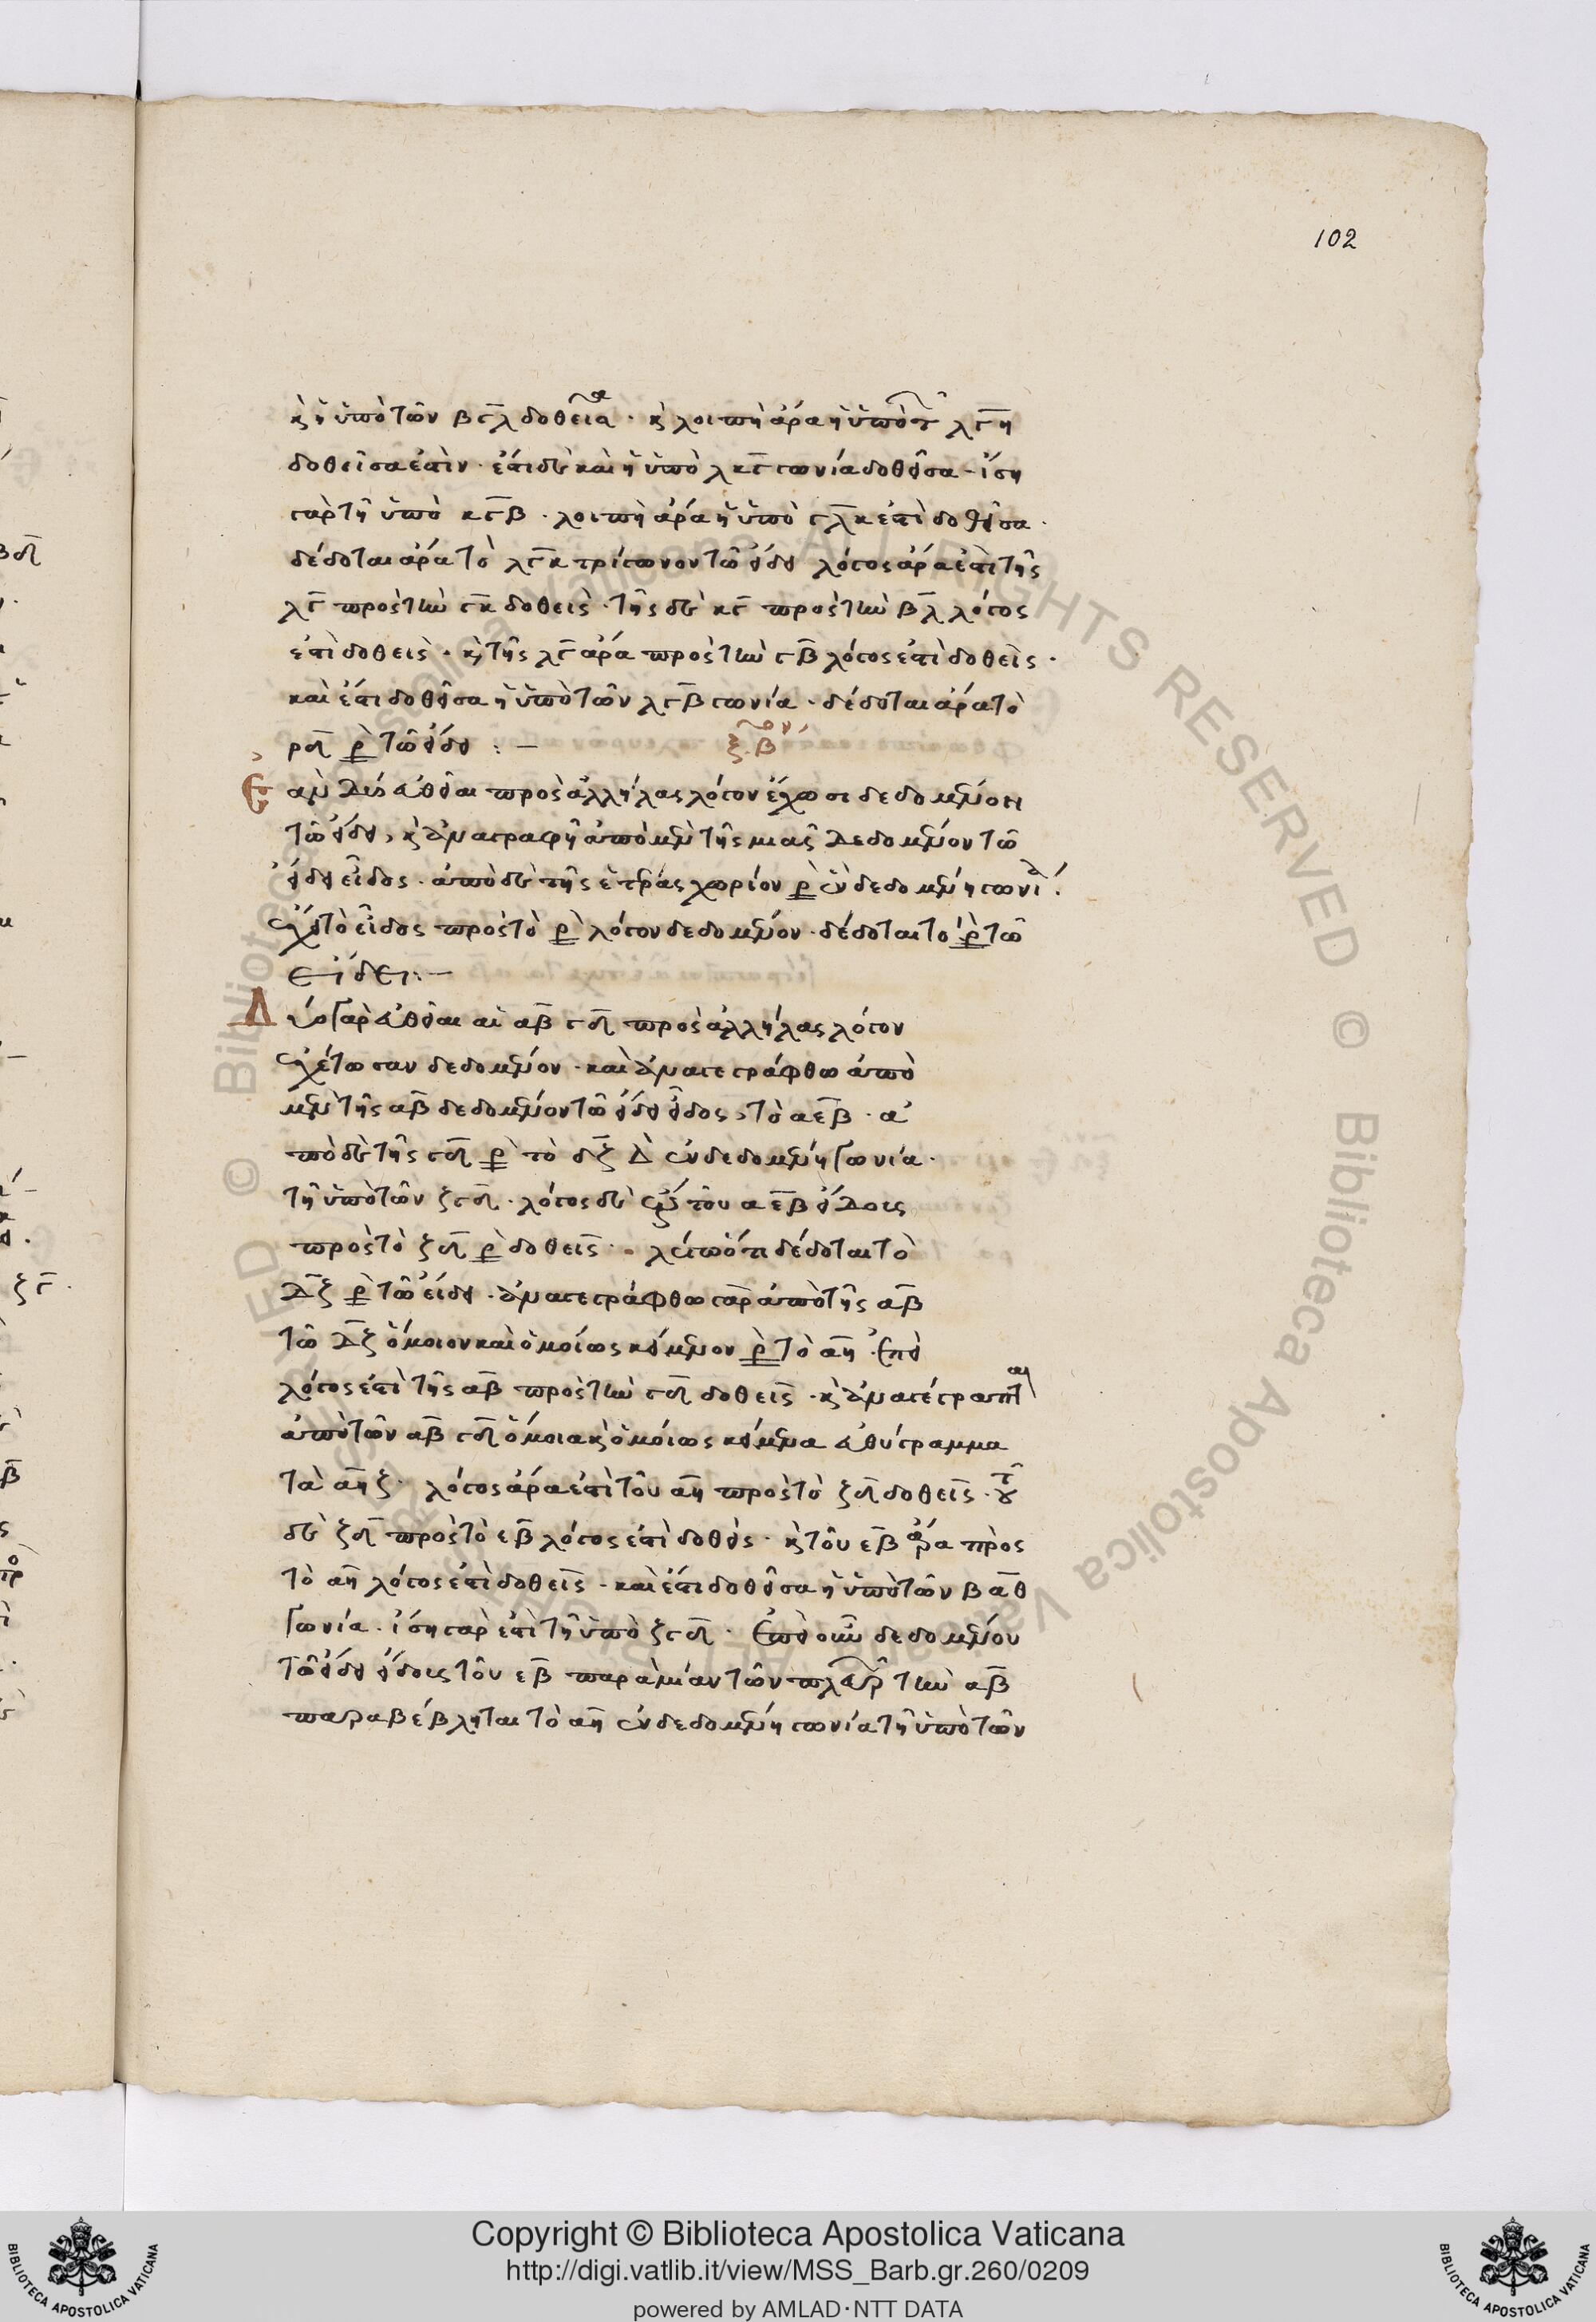 102
κ(αὶ) ἡ ὑπὸ τῶν βγλ δοθεῖσα · κ(αὶ) λοιπὴ ἄρα ἡ ὑπὸ τῶν λγη
δοθεῖσα ἐστὶν · ἔστι δὲ καὶ ἡ ὑπὸ λκγ γωνία δοθεῖσα · ἴση
γὰρ τῆ ὑπὸ κγβ · λοιπὴ ἄρα ἡ ὑπὸ γλκ ἐστὶ δοθεῖσα ·
δέδοται ἄρα τὸ λγκ τρίγωνον τῶ εἴδει λόγος ἄρα ἐστὶ τῆς
λγ πρὸς τὴν γκ δοθεὶς · τῆς δὲ κγ πρὸς τὴν βλ λόγος
ἐστὶ δοθεὶς · κ(αὶ) τῆς λγ ἄρα πρὸς τὴν γβ λόγος ἐστὶ δοθεὶς ·
καὶ ἔστι δοθεῖσα ἡ ὑπὸ τῶν λγβ γωνία · δέδοται ἄρα τὸ
τῶ εἴδει : –
ξβον
Ἐὰν δύο εὐθεῖαι πρὸς ἀλλήλας λόγον ἔχωσι δεδομένον
τῶ εἴδει, κ(αὶ) ἀναγραφῆ ἀπὸ μὲν τῆς μιᾶς δεδομένον τῶ
εἴδει εἶδος · ἀπὸ δὲ τῆς ἑτέρας χωρίον ρ ἐν δεδομένη γωνία ·
ἔχη τὸ εἶδος πρὸς τὸ ρ λόγον δεδομένον · δέδοται τὸ ρ τῶ
εἴδει : –
Δύο γὰρ εὐθεῖαι αἱ αβ γδ πρὸς ἀλλήλας λόγον
ἐχέτωσαν δεδομένον · καὶ ἀναγεγράφθω ἀπὸ
μὲν τῆς αβ δεδομένον τῶ εἴδει εἶδος, τὸ αεβ · ἀ
πὸ δὲ τῆς γδ ρ τὸ δζ ἐν δεδομένη γωνία ·
τῆ ὑπὸ τῶν ζγδ · λόγος δὲ ἔστω τοῦ αεβ εἴδους
πρὸς τὸ ζδ ρ δοθεὶς · λέγω ὅτι δέδοται τὸ
δζ ρ τῶ εἴδει · ἀναγεγράφθω γὰρ ἀπὸ τῆς αβ
τῶ δζ ὅμοιον καὶ ὁμοίως κείμενον ρ τὸ αη · ἐπεὶ
λόγος ἐστὶ τῆς αβ πρὸς τὴν γδ δοθεὶς · κ(αὶ) ἀναγέγραπται
ἀπὸ τῶν αβ γδ ὅμοια κ(αὶ) ὁμοίως κείμενα εὐθύγραμμα
τὰ αη ζ · λόγος ἄρα ἐστὶ τοῦ αη πρὸς τὸ ζδ δοθεὶς · τοῦ
δὲ ζδ πρὸς τὸ εβ λόγος ἐστὶ δοθεὶς · κ(αὶ) τοῦ εβ ἄρα πρὸς
τὸ αη λόγος ἐστὶ δοθεὶς · καὶ ἔστι δοθεῖσα ἡ ὑπὸ τῶν βαθ
γωνία · ἴση γὰρ ἐστὶ τῆ ὑπὸ ζγδ · ἐπεὶ οὖν δεδομένου
τῶ εἴδει εἴδους τοῦ εβ παρὰ μίαν τῶν πλευρῶν τὴν αβ
παραβέβληται τὸ αη ἐν δεδομένη γωνία τῆ ὑπὸ τῶν
Copyright © Biblioteca Apostolica Vaticana
http://digi.vatlib.it/view/MSS_Barb.gr.260/0209
powered by AMLAD·NTT DATA